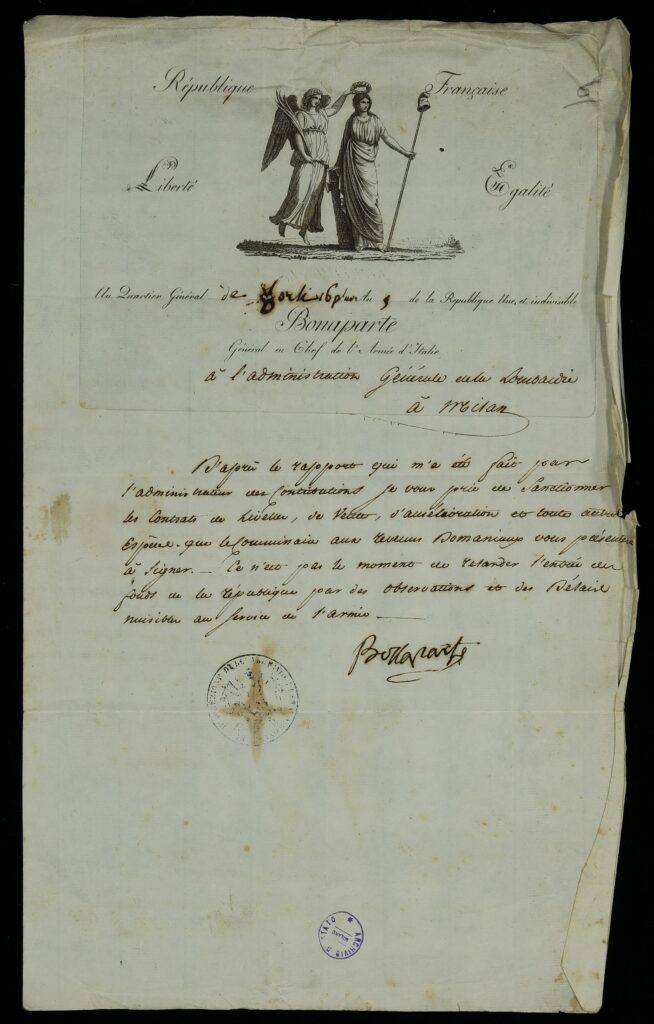 République Française
Liberté Egalité
Au Quartier Général de 16 an 5 de la République Une, et indivisible
Bonaparte
Général en Chef de l'Armée d'Italie
à l'administration Générale de la Lombardie
à Milan
D'après le rapport qui m'a été fait par
l'administrateur des Contributions je vous prie de Sanctionner
les Contrats de Livelle, de Vente, d'amélioration et toute autre
Espèce que le Commissaire aux revenus Domaniaux vous présentera
à Signer. Ce n'est pas le moment de retarder l'entrée des
fonds de la république par des observations et des Délais
nuisible au Service de l'armée
Bonaparte
ARCHIVIO D. STATO
MILANO